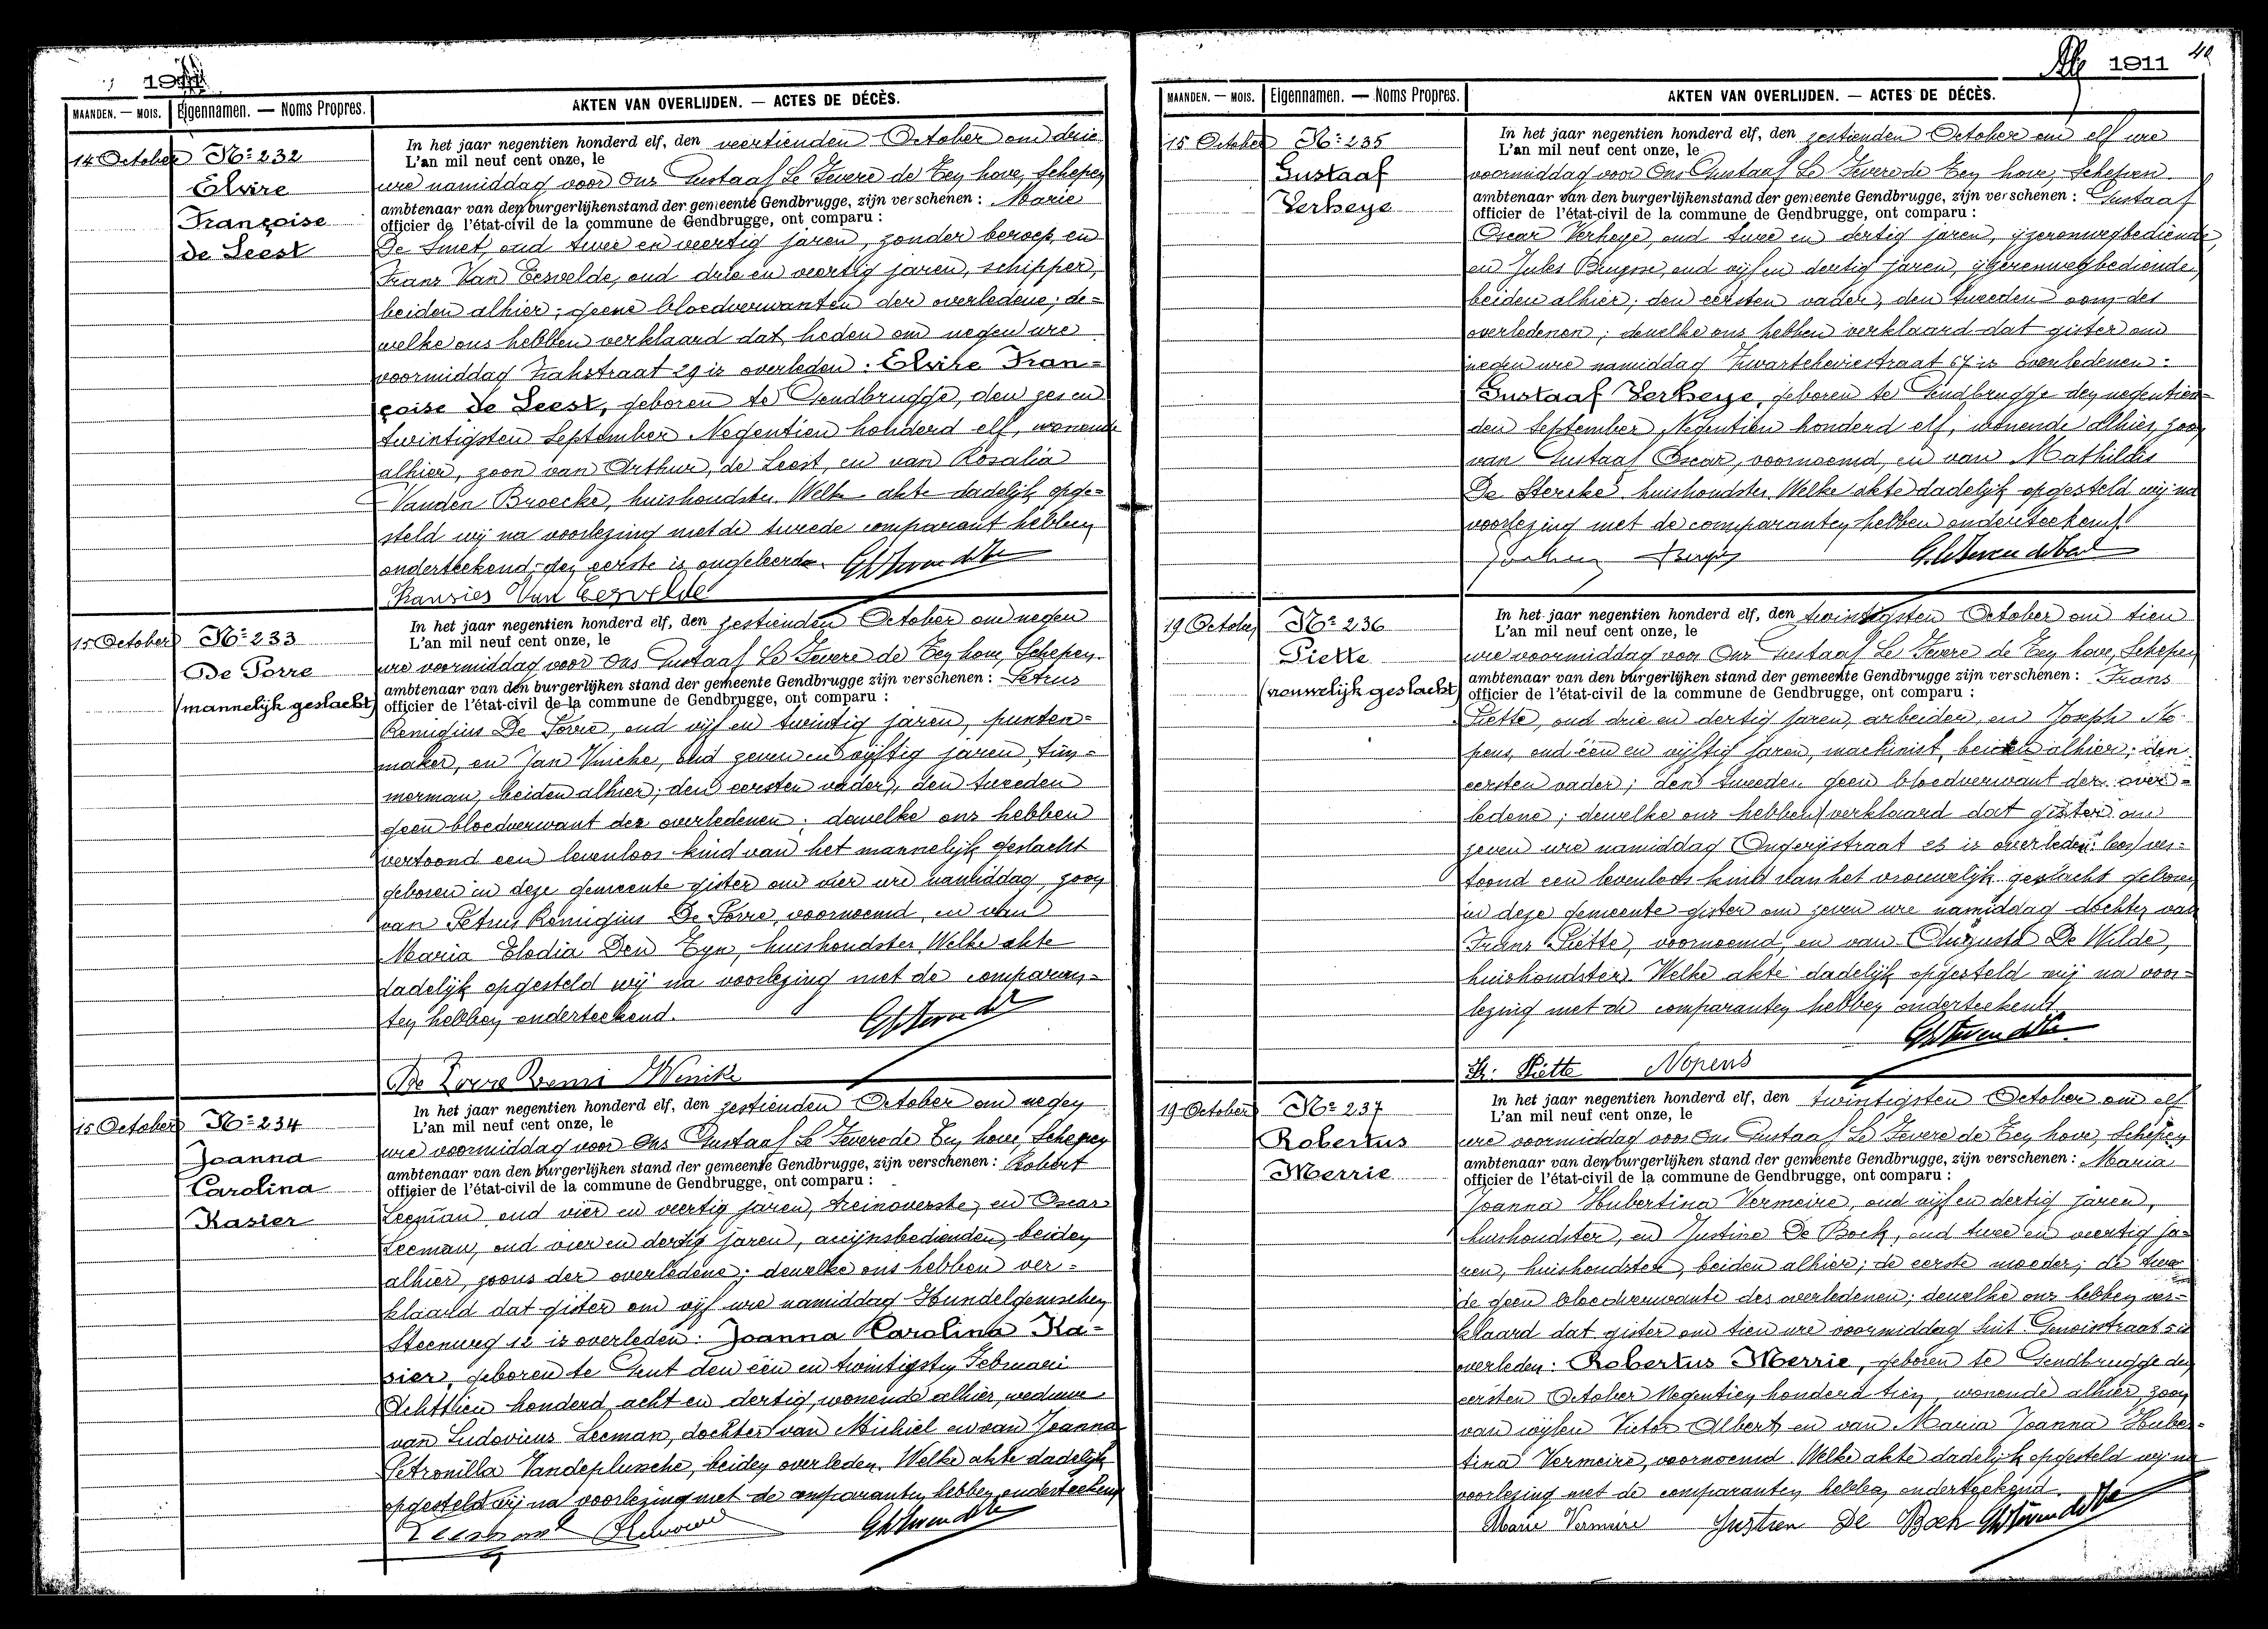 1911
MAANDEN. — MOIS.
Eigennamen. — Noms Propres.
AKTEN VAN OVERLIJDEN. — ACTES DE DÉCÈS.
14 October
No 232
Elvire
Françoise
de Leest
In het jaar negentien honderd elf, den veertienden October om drie
L'an mil neuf cent onze, le
ure namiddag voor Ons Gustaaf Le Fevere de Ten hove, Schepen
ambtenaar van den burgerlijkenstand der gemeente Gendbrugge, zijn verschenen : Marie
officier de l'état-civil de la commune de Gendbrugge, ont comparu :
De Smet, oud twee en veertig jaren, zonder beroep, en
Frans Van Eesvelde, oud drie en veertig jaren, schipper,
beiden alhier; geene bloedverwanten der overledene; de=
welke ons hebben verklaard dat heden om negen ure
voormiddag 29 is overleden : Elvire Fran=
çoise de Leest, geboren te Gendbrugge, den zes en
twintigsten September Negentien honderd elf, wonende
alhier, zoon van Arthur, de Leest, en van Rosalia
Vanden Broecke, huishoudster. Welke akte dadelijk opge=
steld wij na voorlezing met de tweede comparant hebben
onderteekend, den eerste is ongeleerd.
Fransies Van Eesvelde
15 October
No 233
De Porre
(mannelijk geslacht)
In het jaar negentien honderd elf, den zestienden October om negen
L'an mil neuf cent onze, le
ure voormiddag voor Ons Gustaaf Le Fevere de Ten hove, Schepen
ambtenaar van den burgerlijken stand der gemeente Gendbrugge zijn verschenen : Petrus
officier de l'état-civil de la commune de Gendbrugge, ont comparu :
Remigius De Porre, oud vijf en twintig jaren, punten=
maker, en Jan oud zeven en vijftig jaren, tim=
merman, beiden alhier; den eersten vader, den tweeden
geen bloedverwant des overledenen; dewelke ons hebben
vertoond een levenloos kind van het mannelijk geslacht
geboren in deze gemeente gister om vier ure namiddag, zoon
van Petrus Remigius De Porre, voornoemd, en van
Maria Elodia Den Tyn, huishoudster. Welke akte
dadelijk opgesteld wij na voorlezing met de comparan=
ten hebben onderteekend.
De Porre Remi
15 October
No 234
Joanna
Carolina
Kasier
In het jaar negentien honderd elf, den zestienden October om negen
L'an mil neuf cent onze, le
ure voormiddag voor Ons Gustaaf Le Fevere de Ten hove, Schepen
ambtenaar van den burgerlijken stand der gemeente Gendbrugge, zijn verschenen : Robert
officier de l'état-civil de la commune de Gendbrugge, ont comparu :
Leeman, oud vier en veertig jaren, treinoverste, en Oscar
Leeman, oud vier en dertig jaren, accijnsbedienden, beiden
alhier, zoons der overledene; dewelke ons hebben ver=
klaard dat gister om vijf ure namiddag Hundelgemschen
Steenweg 12 is overleden : Joanna Carolina Ka=
sier, geboren te Gent den één en twintigsten Februari
Achttien honderd acht en dertig, wonende alhier, weduwe
van Ludovicus Leeman, dochter van Michiel en van Joanna
Petronilla beiden overleden. Welke akte dadelijk
opgesteld wij na voorlezing met de comparanten hebben onderteekend
1911
MAANDEN. — MOIS.
Eigennamen. — Noms Propres.
AKTEN VAN OVERLIJDEN. — ACTES DE DÉCÈS.
15 October
No 235
Gustaaf
Verheye
In het jaar negentien honderd elf, den zestienden October om elf ure
L'an mil neuf cent onze, le
voormiddag voor Ons Gustaaf Le Fevere de Ten hove, Schepen
ambtenaar van den burgerlijkenstand der gemeente Gendbrugge, zijn verschenen : Gustaaf
officier de l'état-civil de la commune de Gendbrugge, ont comparu :
Oscar Verheye, oud twee en dertig jaren, ijzerenwegbediende,
en Jules oud vijf en dertig jaren, ijzerenwegbediende,
beiden alhier; den eersten vader, den tweeden oom des
overledenen; dewelke ons hebben verklaard dat gister om
negen ure namiddag 67 is overledenen :
Gustaaf Verheye, geboren te Gendbrugge den negentien=
den September Negentien honderd elf, wonende alhier, zoon
van Gustaaf Oscar, voornoemd, en van Mathildis
De Stercke, huishoudster. Welke akte dadelijk opgesteld wij na
voorlezing met de comparanten hebben onderteekend.
19 October
No 236
Piette
(vrouwelijk geslacht)
In het jaar negentien honderd elf, den twintigsten October om tien
L'an mil neuf cent onze, le
ure voormiddag voor Ons Gustaaf Le Fevere de Ten hove, Schepen
ambtenaar van den burgerlijken stand der gemeente Gendbrugge zijn verschenen : Frans
officier de l'état-civil de la commune de Gendbrugge, ont comparu :
Piette, oud drie en dertig jaren, arbeider, en Joseph No=
pens, oud één en vijftig jaren, machinist, beiden alhier; den
eersten vader; den tweeden geen bloedverwant der over=
ledene; dewelke ons hebben verklaard dat gister om
zeven ure namiddag is overleden: lees/ ver=
toond een levenloos kind van het vrouwelijk geslacht geboren
in deze gemeente gister om zeven ure namiddag dochter van
Frans Piette, voornoemd, en van Augusta De Wilde,
huishoudster. Welke akte dadelijk opgesteld wij na voor=
lezing met de comparanten hebben onderteekend.
Fr. Piette Nopens
19 October
No 237
Robertus
Merrie
In het jaar negentien honderd elf, den twintigsten October om elf
L'an mil neuf cent onze, le
ure voormiddag voor Ons Gustaaf Le Fevere de Ten hove, Schepen
ambtenaar van den burgerlijken stand der gemeente Gendbrugge, zijn verschenen : Maria
officier de l'état-civil de la commune de Gendbrugge, ont comparu :
Joanna Hubertina Vermeire, oud vijf en dertig jaren,
huishoudster, en Justine De Bock, oud twee en veertig ja=
ren, huishoudster, beiden alhier; de eerste moeder; de twee
de geen bloedverwante des overledenen; dewelke ons hebben ver=
klaard dat gister om tien ure voormiddag is
overleden : Robertus Merrie, geboren te Gendbrugge den
eersten October Negentien honderd tien, wonende alhier, zoon
van wijlen Victor Albert, en van Maria Joanna Huber=
tina Vermeire, voornoemd. Welke akte dadelijk opgesteld wij na
voorlezing met de comparanten hebben onderteekend.
Marie Vermeire Justien De Bock